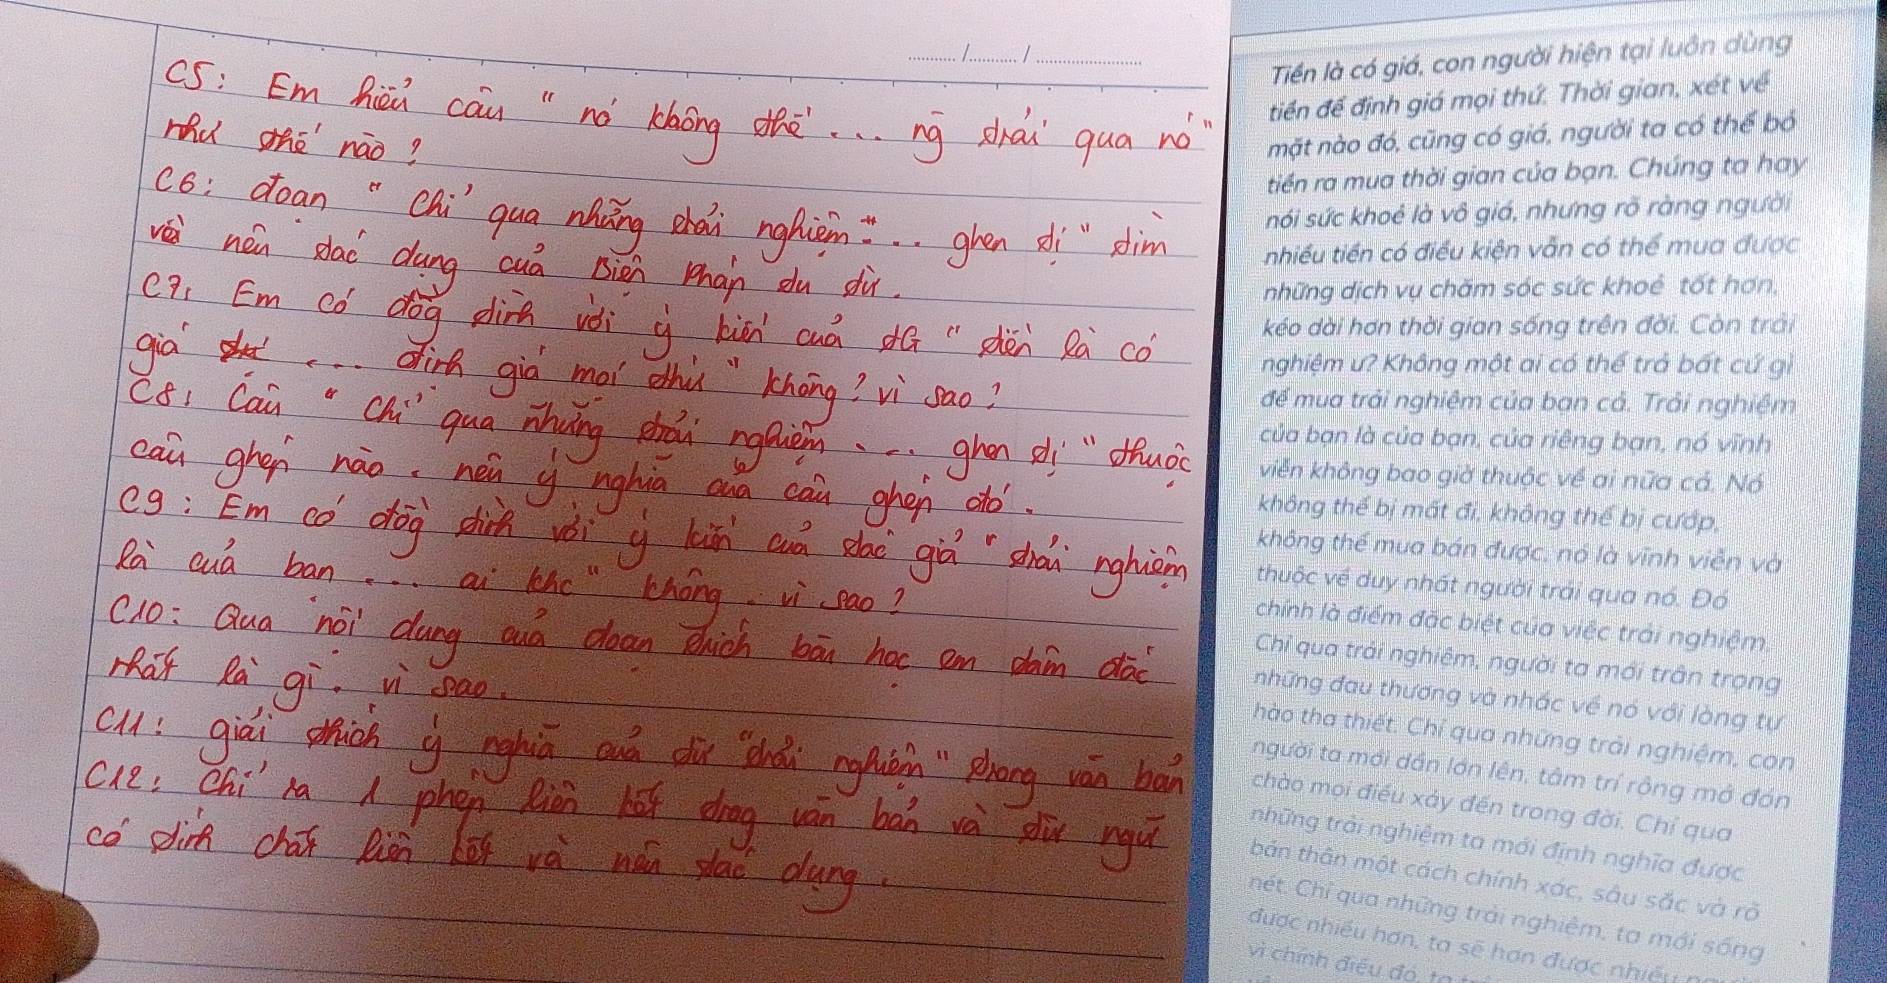 C5: Em hiểu câu " nó không thể ... ng trải qua nó"
như thế nào?
C6: đoạn " chỉ qua những trải nghiệm ... ghen tị" tìm
và nêu tác dụng của biện pháp tu từ.
C7: Em có đồg tình với ý kiến của tG " tiền là có
giá ... định giá mọi thứ" không? vì sao?
C8: Câu " chỉ qua những trải nghiệm ... ghen tị" thuộc
câu ghép nào. nêu ý nghĩa của câu ghép đó.
C9: Em có đồg tình với ý kiến của tác giả " trải nghiệm
là của bạn ... ai khc" không. vì sao?
C10: Qua nội dung của đoạn trích bài học em tâm đắc
nhất là gì. vì sao.
C11: giải thích ý nghĩa của từ "trải nghiệm" trong văn bản
C12: Chỉ ra 1 phép liên kết trog văn bản và từ ngữ
có tính chất liên kết và nêu tác dụng.
Tiền là có giá, con người hiện tại luôn dùng
tiền để định giá mọi thứ. Thời gian, xét về
mặt nào đó, cũng có giá, người ta có thể bỏ
tiền ra mua thời gian của bạn. Chúng ta hay
nói sức khoẻ là vô giá, nhưng rõ ràng người
nhiều tiền có điều kiện vẫn có thể mua được
những dịch vụ chăm sóc sức khoẻ tốt hơn,
kéo dài hơn thời gian sống trên đời. Còn trải
nghiệm ư? Không một ai có thể trả bất cứ gì
để mua trải nghiệm của bạn cả. Trải nghiệm
của bạn là của bạn, của riêng bạn, nó vĩnh
viễn không bao giờ thuộc về ai nữa cả. Nó
không thể bị mất đi, không thể bị cướp,
không thể mua bán được, nó là vĩnh viễn và
thuộc về duy nhất người trải qua nó. Đó
chính là điểm đặc biệt của việc trải nghiệm.
Chỉ qua trải nghiệm, người ta mới trân trọng
những đau thương và nhắc về nó với lòng tự
hào tha thiết. Chỉ qua những trải nghiệm, con
người ta mới dần lớn lên, tâm trí rộng mở đón
chào mọi điều xảy đến trong đời. Chỉ qua
những trải nghiệm ta mới định nghĩa được
bản thân một cách chính xác, sâu sắc và rõ
nét. Chỉ qua những trải nghiệm, ta mới sống
được nhiều hơn, ta sẽ hơn được nhiều
vì chính điều đó,